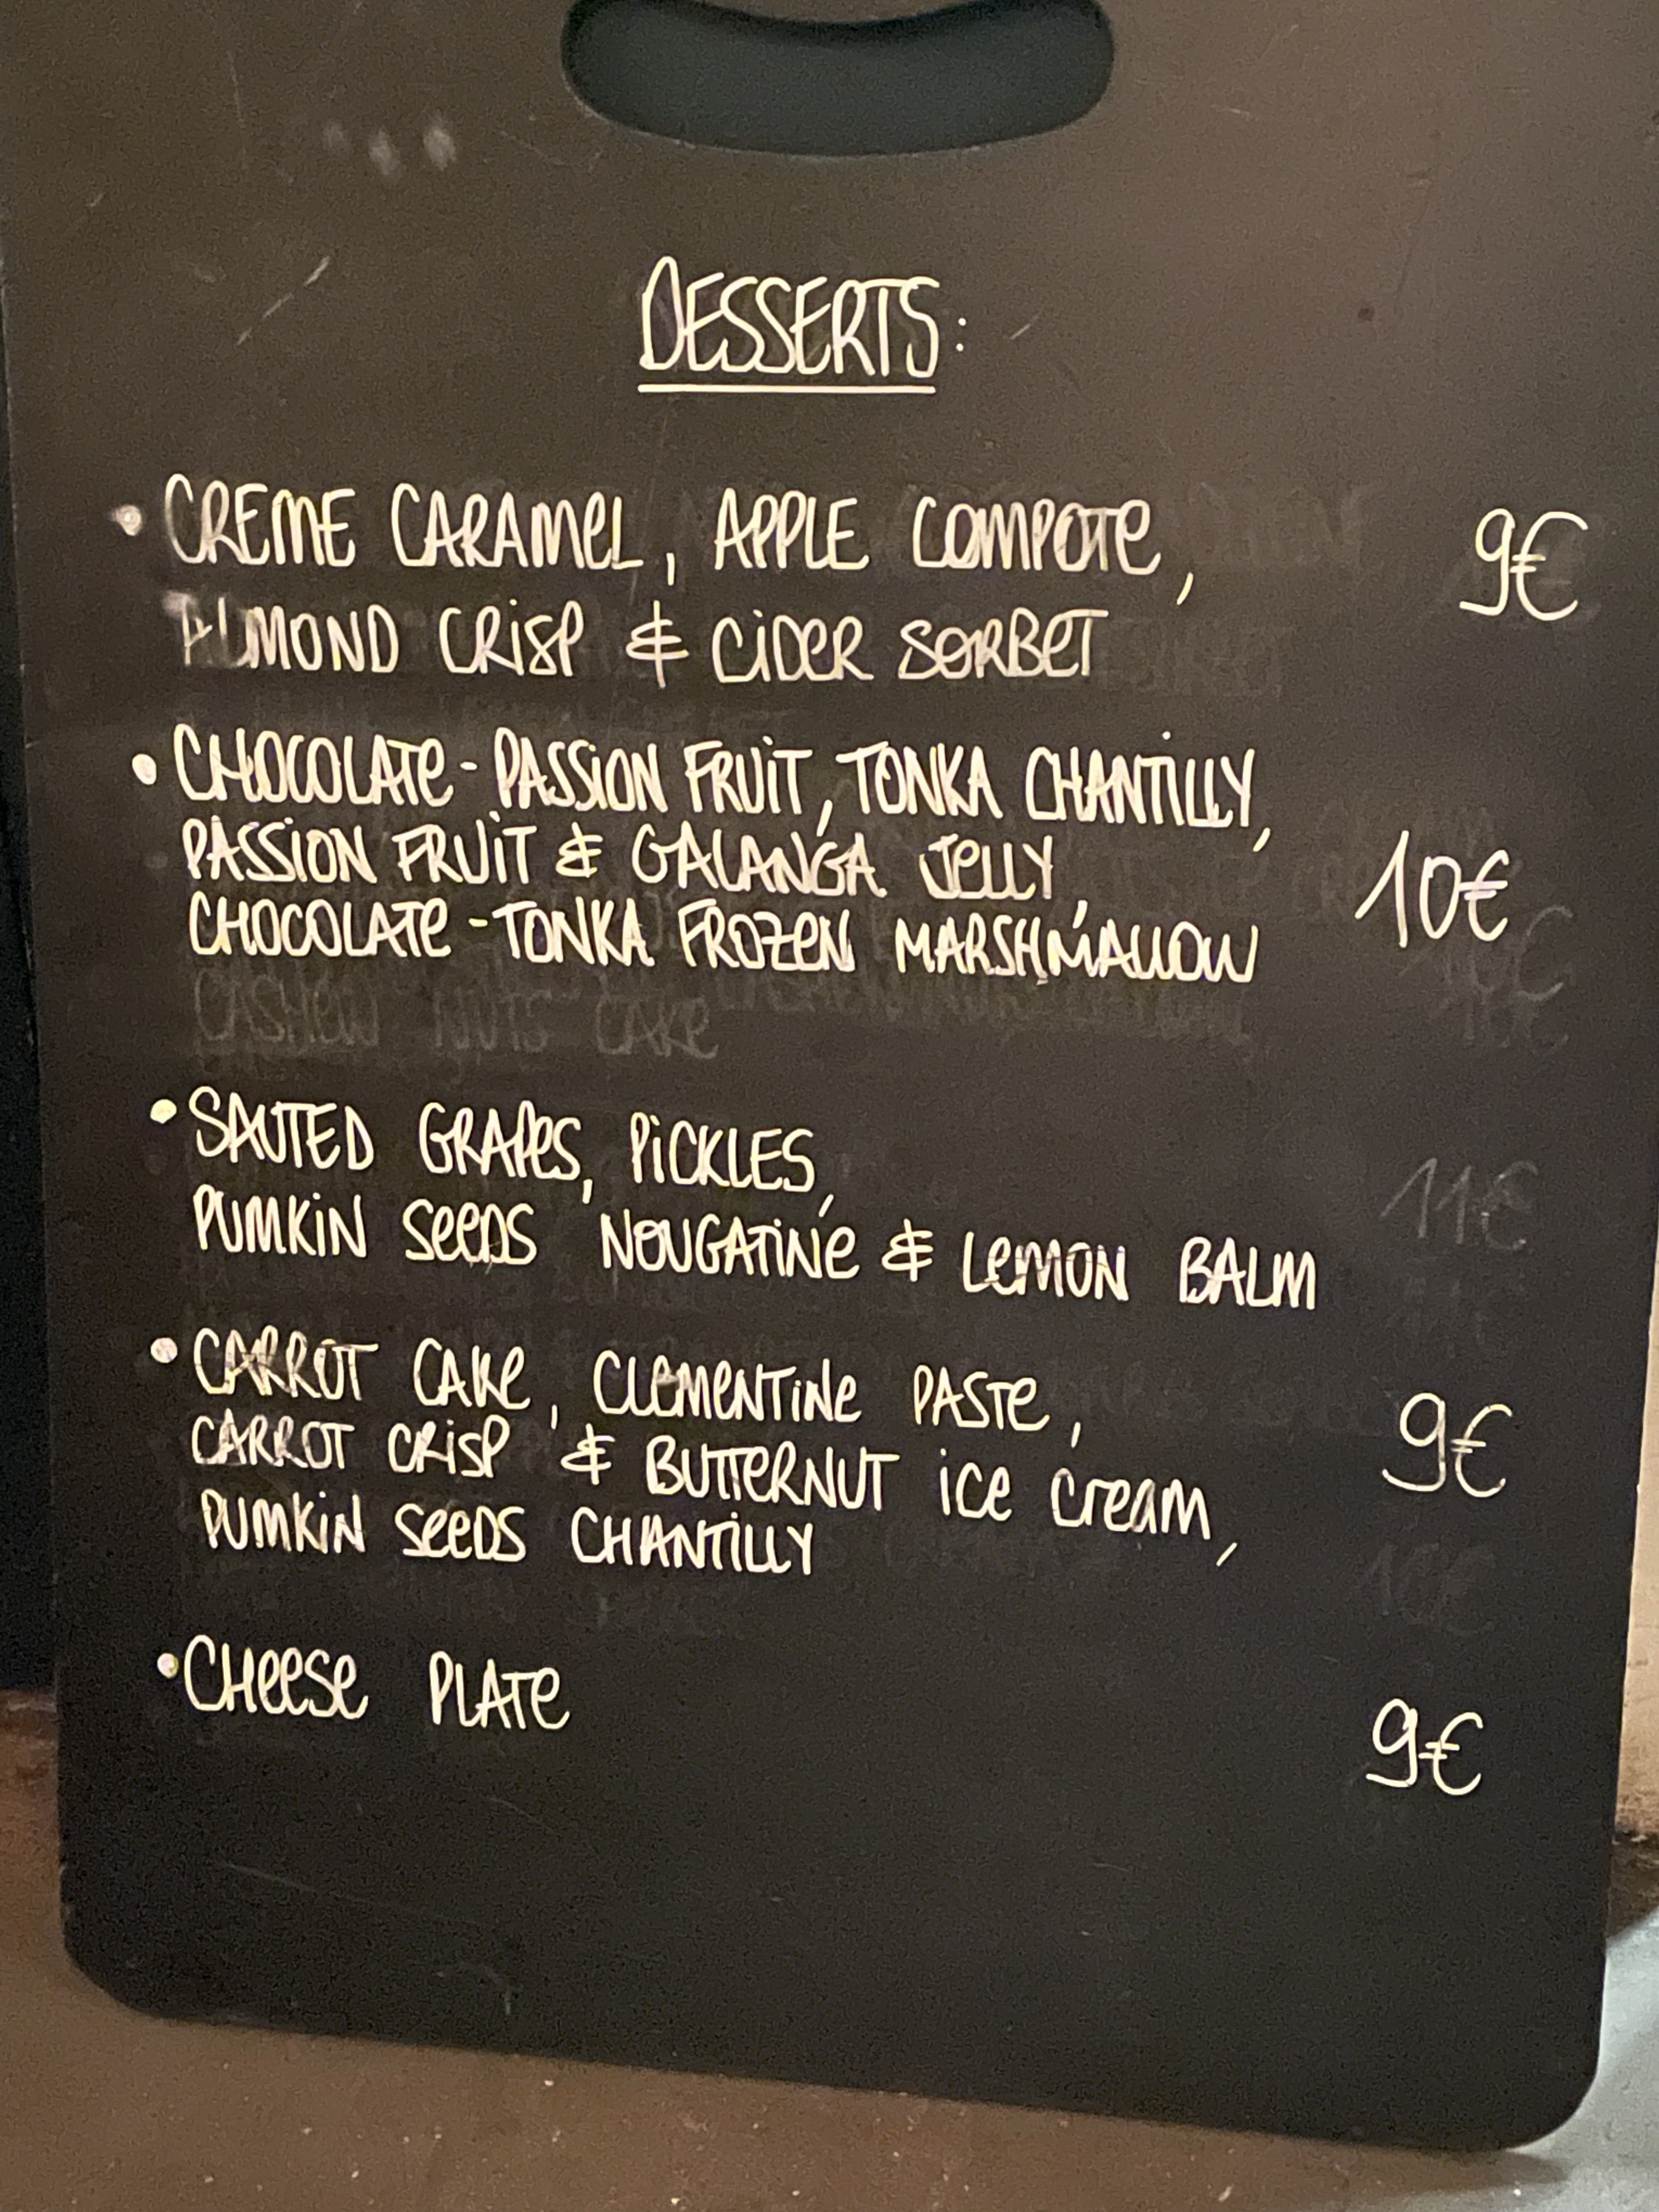 DESSERTS:
• CREME CARAMEL, APPLE COMPOTE, 9€
ALMOND CRISP & CIDER SORBET
• CHOCOLATE - PASSION FRUIT, TONKA CHANTILLY,
PASSION FRUIT & GALANGA JELLY, 10€
CHOCOLATE - TONKA FROZEN MARSHMALLOW
CASHEW NUTS CAKE
• SAUTED GRAPES, PICKLES, 11€
PUMKIN SEEDS NOUGATINE & LEMON BALM
• CARROT CAKE, CLEMENTINE PASTE, 9€
CARROT CRISP & BUTTERNUT ICE CREAM,
PUMKIN SEEDS CHANTILLY
• CHEESE PLATE 9€